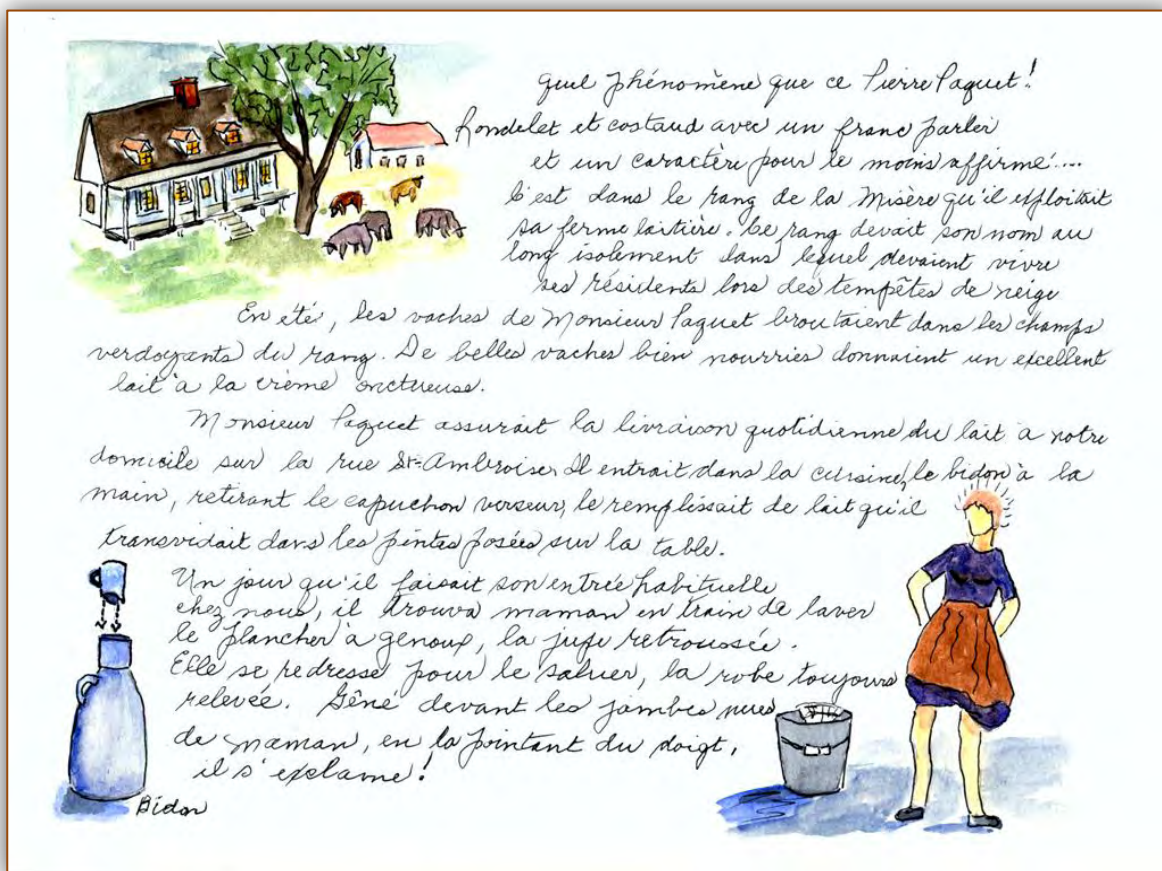 Quel phénomène que ce Pierre Paquet!
Rondelet et costaud avec un franc parler
et un caractère pour le moins affirmé....
C'est dans le rang de la Misère qu'il exploitait
sa ferme laitière. Ce rang devait son nom au
long isolement dans lequel devaient vivre
ses résidents lors des tempêtes de neige
En été, les vaches de Monsieur Paquet broutaient dans les champs
verdoyants du rang. De belles vaches bien nourries donnaient un excellent
lait à la crème onctueuse.
Monsieur Paquet assurait la livraison quotidienne du lait à notre
domicile sur la rue St-Ambroise. Il entrait dans la cuisine, le bidon à la
main, retirant le capuchon verseur, le remplissait de lait qu'il
transvidait dans les pintes posées sur la table.
Un jour qu'il faisait son entrée habituelle
chez nous, il trouva maman en train de laver
le plancher à genoux, la jupe retroussée.
Elle se redresse pour le saluer, la robe toujours
relevée. Gêné devant les jambes nues
de maman, en la pointant du doigt,
il s'exclame!
Bidon